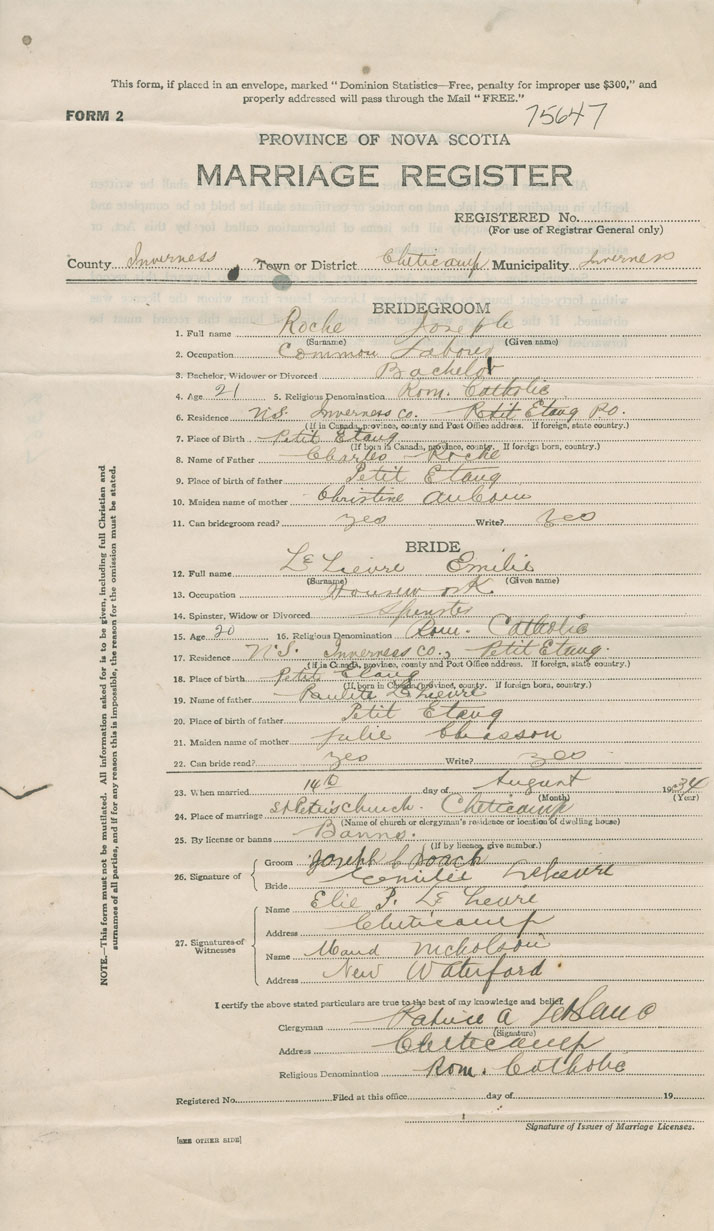 This form, if placed in an envelope, marked "Dominion Statistics—Free, penalty for improper use $300," and
properly addressed will pass through the Mail "FREE."
FORM 2
75647
PROVINCE OF NOVA SCOTIA
MARRIAGE REGISTER
REGISTERED No.
(For use of Registrar General only)
County Inverness Town or District Cheticamp Municipality Inverness
BRIDEGROOM
1. Full name Roche Joseph
(Surname) (Given name)
2. Occupation Common Labour
3. Bachelor, Widower or Divorced Bachelor
4. Age 21 5. Religious Denomination Rom. Catholic
6. Residence N.S. Inverness Co. Petit Etang P.O.
(If in Canada, province, county and Post Office address. If foreign, state country.)
7. Place of Birth Petit Etang
(If born in Canada, province, county. If foreign born, country.)
8. Name of Father Charles Roche
9. Place of birth of father Petit Etang
10. Maiden name of mother Christine AuCoin
11. Can bridegroom read? yes Write? yes
BRIDE
12. Full name Le Lievre Emilie
(Surname) (Given name)
13. Occupation Housework
14. Spinster, Widow or Divorced Spinster
15. Age 20 16. Religious Denomination Rom. Catholic
17. Residence N.S. Inverness Co., Petit Etang.
(If in Canada, province, county and Post Office address. If foreign, state country.)
18. Place of birth Petit Etang
(If born in Canada, province, county. If foreign born, country.)
19. Name of father Le Lievre
20. Place of birth of father Petit Etang
21. Maiden name of mother Julie Chiasson
22. Can bride read? yes Write? yes
23. When married 14th day of August 1934
(Month) (Year)
24. Place of marriage St Peter's church. Cheticamp
(Name of church or clergyman's residence or location of dwelling house)
25. By license or banns Banns.
(If by licence, give number.)
26. Signature of
Groom Joseph C Roach
Bride Emilie Lelievre
27. Signatures of Witnesses
Name Elie P. Le Lievre
Address Cheticamp
Name Maud Nicholson
Address New Waterford
I certify the above stated particulars are true to the best of my knowledge and belief.
Clergyman Patrice A LeBlanc
(Signature)
Address Cheticamp
Religious Denomination Rom. Catholic
Registered No. Filed at this office day of 19
Signature of Issuer of Marriage Licenses.
[SEE OTHER SIDE]
NOTE.—This form must not be mutilated. All information asked for is to be given, including full Christian and
surnames of all parties, and if for any reason this is impossible, the reason for the omission must be stated.